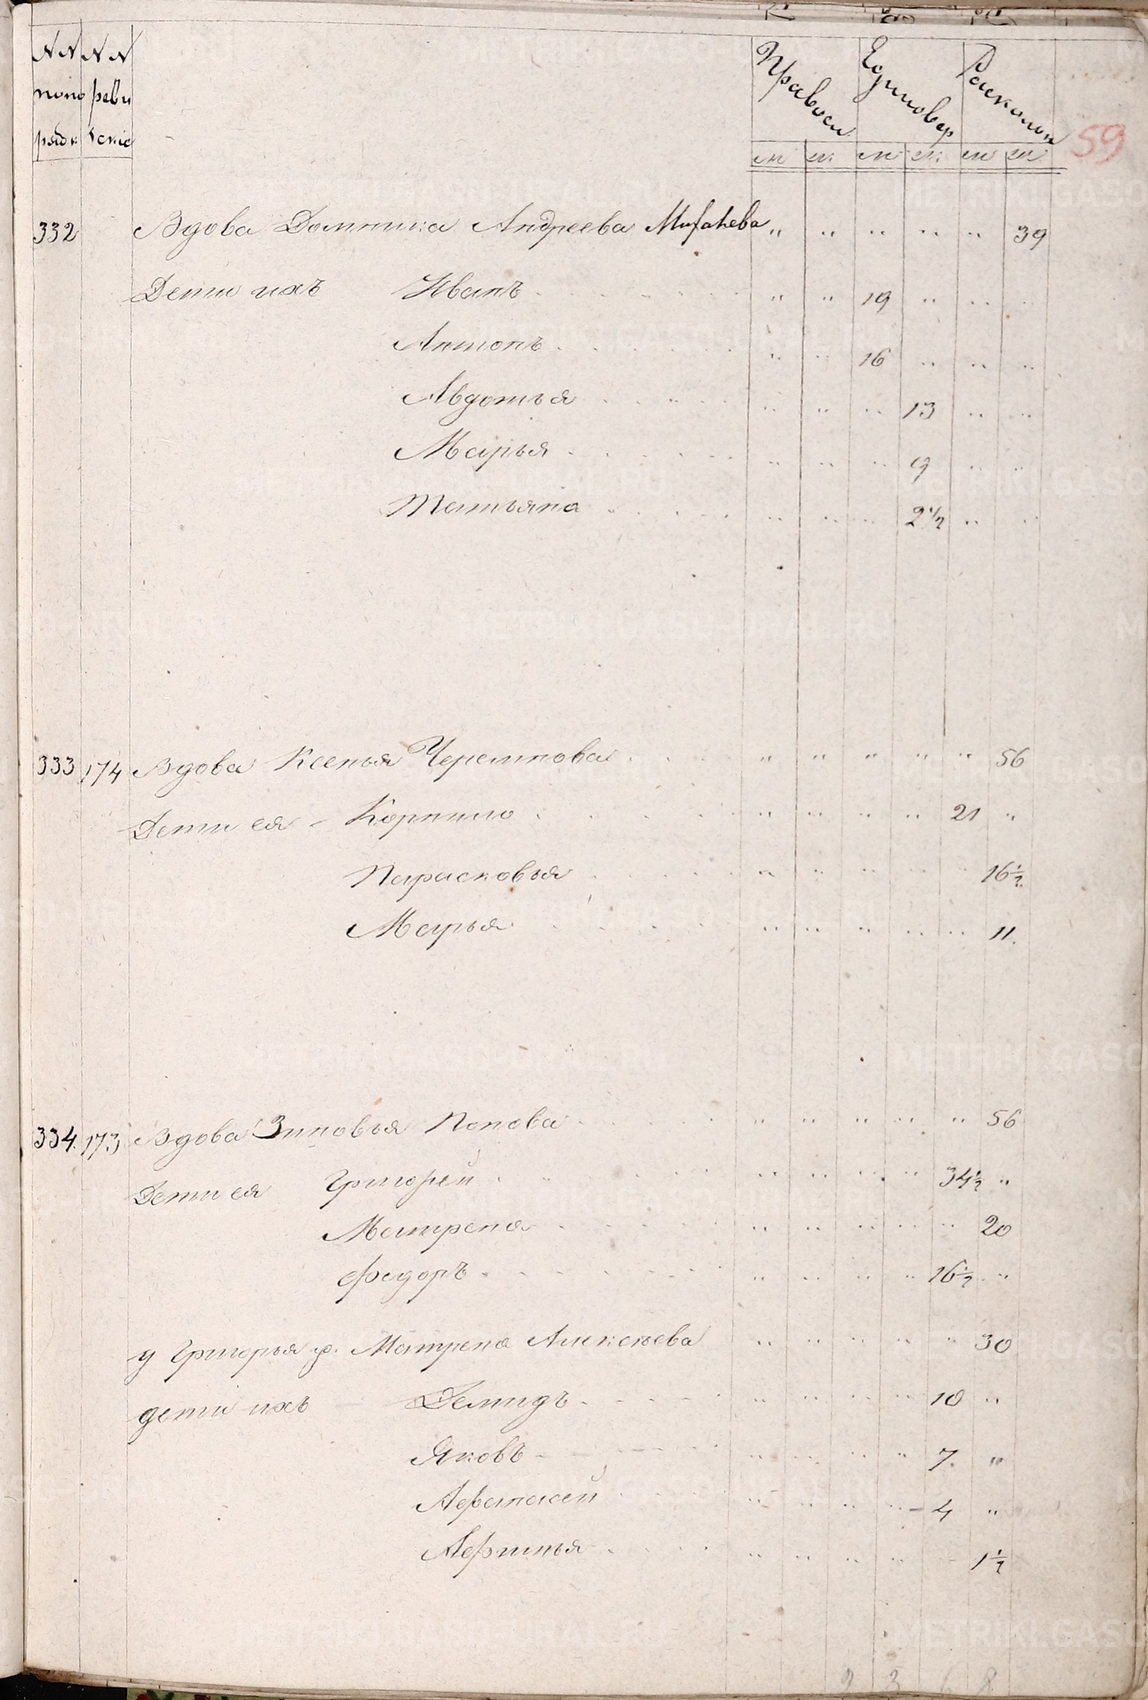 NN NN
поно реви
рядк женіе
Правосл Единовер Расколн
м ж м ж м ж
59
332 Вдова Домника Андреева " " " " " 39
Дети ихъ Иванъ " " 19 " " "
Антонъ " " 16 " " "
Авдотья " " " 13 " "
Марья " " " 9 " "
Татьяна " " " 2½ " "
333 174 Вдова Ксенья Черемнова " " " " " 56
Дети ея - Корнило " " " " 21 "
Парасковья " " " " " 16½
Марья " " " " " 11.
334. 173 Вдова Зиновья Попова " " " " " 56
Дети ея Григорей " " " " 34½ "
Матрена " " " " " 20
Федоръ " " " " 16½ "
у Григорья ж. Матрена Алексеева " " " " " 30
дети ихъ Демидъ " " " " 10 "
Яковъ " " " " 7. "
Афанасей " " " " 4 "
Афимья " " " " " 1½